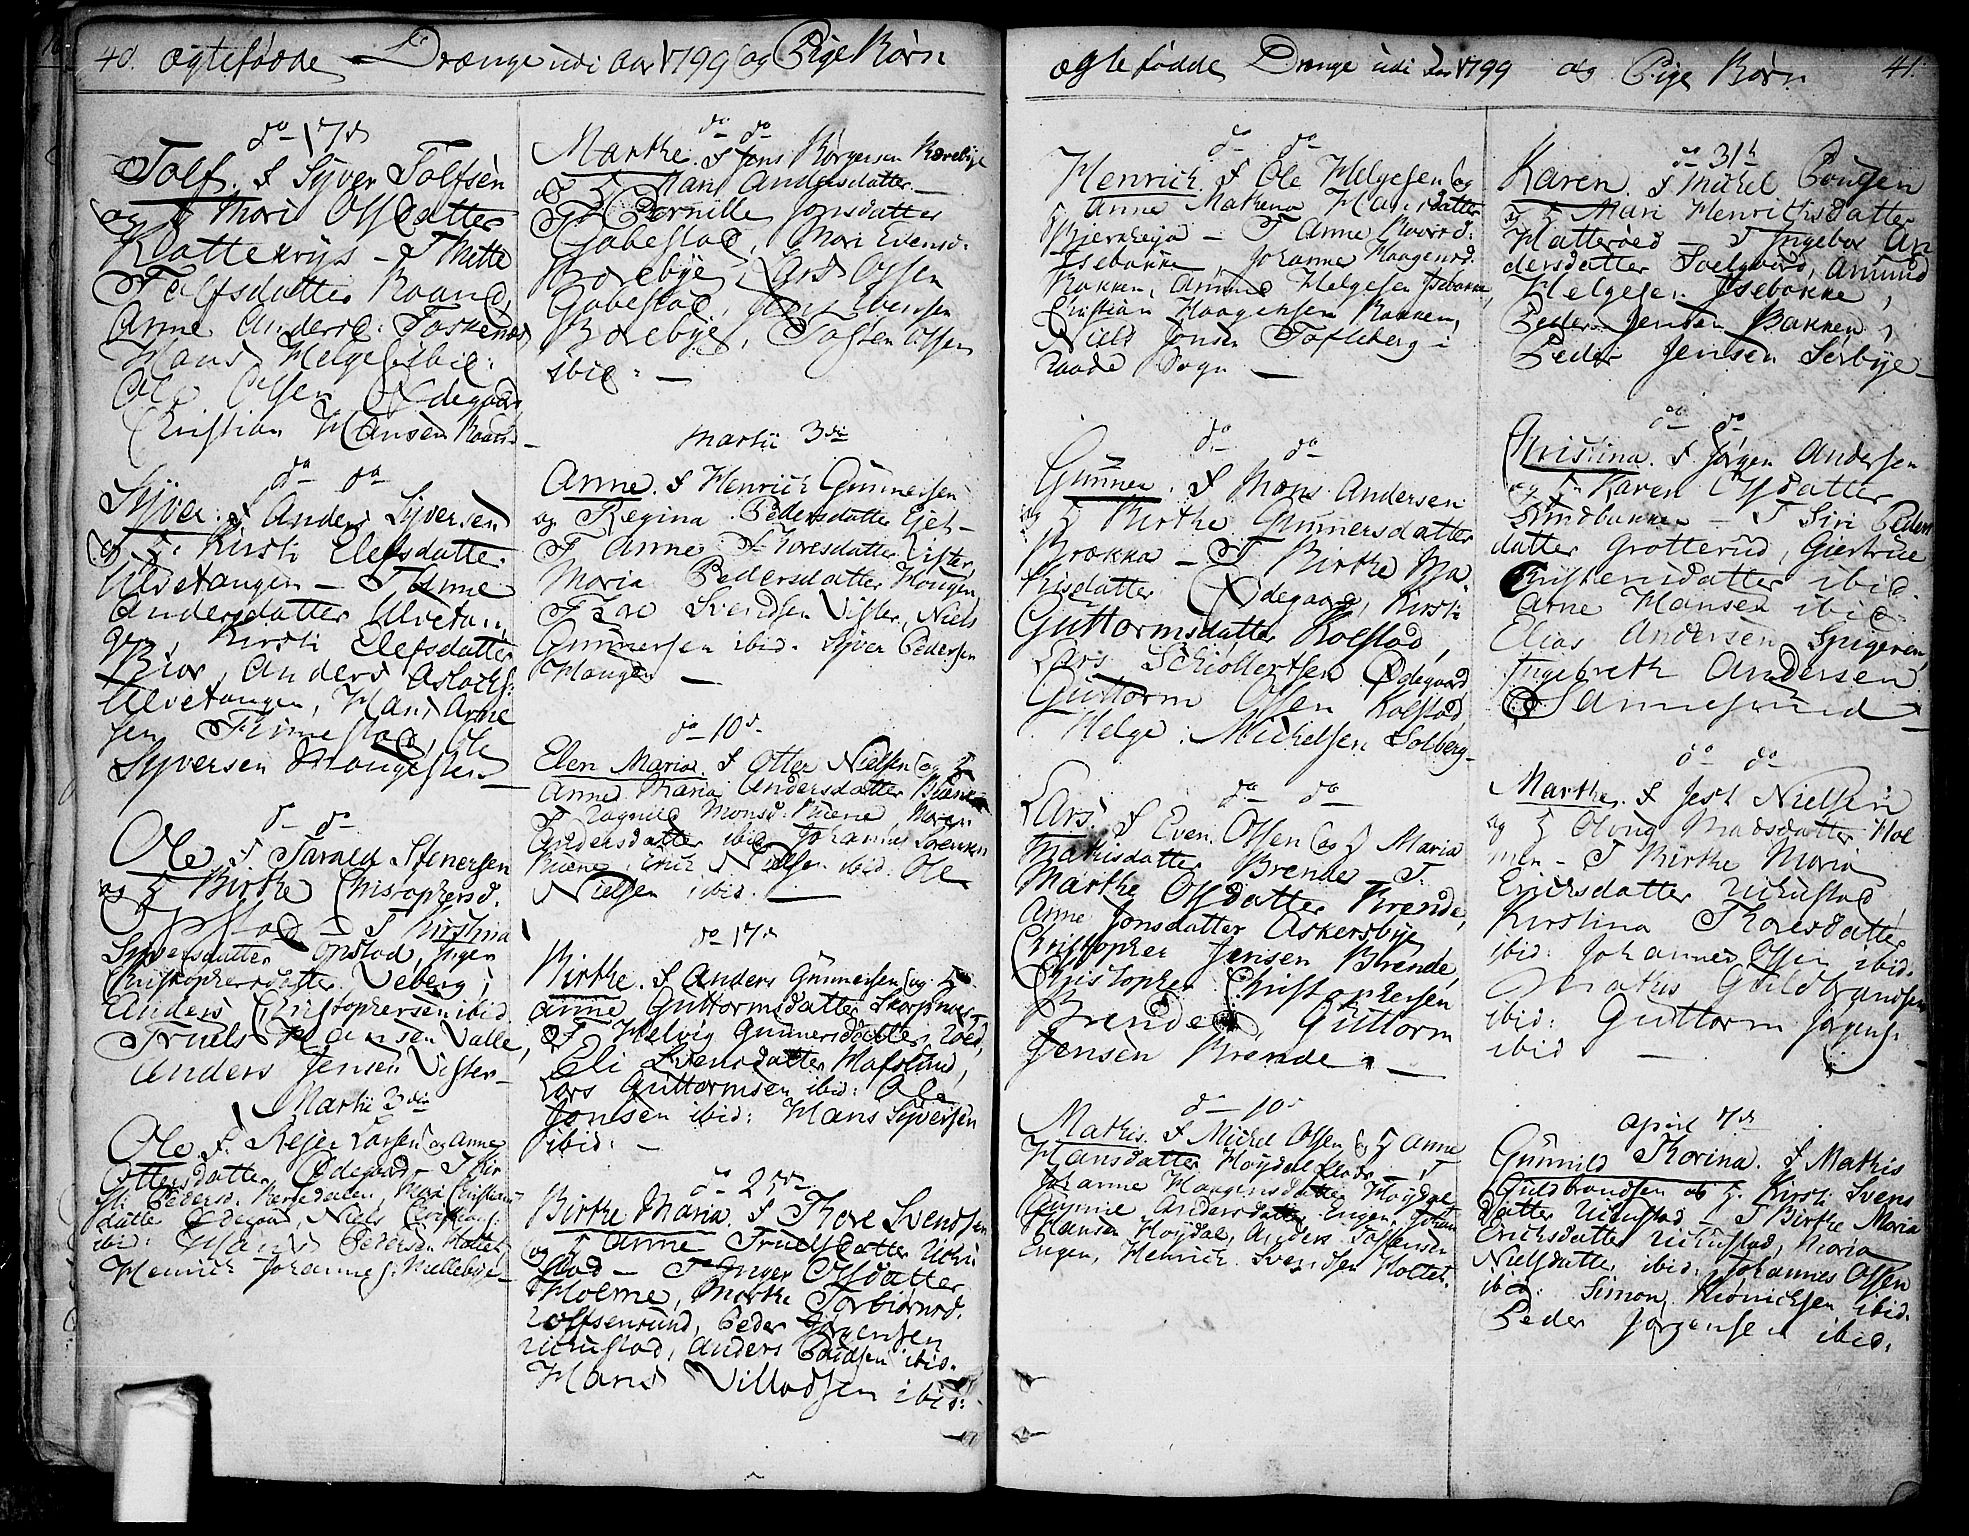 40. ægtefødde Drænge udi Aar 1799 og Pige Børn
do 17de
Tolf. F Syver Tolfsen
og H Mari Olsdatter
Klattekrys - T Mette
Tolfsdatter
Anne Andersd:
Hans Helges ibid:
Ole Olsen Ødegaard
Christian Hansen
do do
Syver. F Anders Syversen
og H: Kirsti Elefsdatter
Ulvetangen - T Anne
Andersdatter Ulvetan
gen, Kirsti Elefsdatter
Anders Aslachs:
Ulvetangen, Hans Arne
sen Fimestad, Ole
Syversen
do do
Ole F Tarald Stenersen
og H Birthe Chistophersd.
Opstad - T Kirstina
Syversdatter Opstad, Inger
Christophersdatter Veberg,
Anders Christophersen ibid
Truels Hansen Valle,
Anders Jensen Vister -
Martii 3die
Ole F: Reier Larsen og Anne
Ottersdatter Ødegaard - T Kir
sti Pedersd. Mari Christians
datter Ødegaard, Niels Christians:
ibid: Hans Pedersen
Henrich Johannes: Mellebye -
do do
Marthe. F Jens Børgersen
og H Mari Andersdatter -
T Pernille Jonsdatter
Gabestad, Mari Evensd:
Borebye, Lars Olsen
Gabestad, Jens Evensen
Borebye, Tosten Olsen
ibid: -
Martii 3die
Anne. F Henrich Gunnersen
og Regina Pedersdatter
T Anne Toresdatter Vister,
Maria Pedersdatter Haugen,
Tore Svendsen Vister, Niels
Gunnersen ibid. Syver Pedersen
Haugen -
do 10de
Elen Maria. F Otter Nielsen og H
Anne Maria Andersdatter Buene
T Ragnild Monsd. Buene, Maren
Andersdatter ibid, Johannes Sørensen
Buene, Erich Nielsen ibid. Ole
Nielsen ibid. -
do 17de
Birthe. F Anders Gunnersen og H
Anne Guttormsdatter
T Helvig Gunnersdatter
Eli Svensdatter Hafslund,
Lars Guttormsen ibid: Ole
Jensen ibid: Hans Syversen
ibid: -
do 25de
Birthe Maria. F Thore Svendsen
og H Anne Truelsdatter
stad - T Inger Olsdatter
Holme, Marthe Torbiørnsd:
Peder Jørgensen
Anders Poulsen ibid.
Hans Villadsen ibid:
ægtefødde Drænge udi Aar 1799 og Pige Børn 41.
do do
Henrich. F Ole Helgesen og
H Anne Mathena Hansdatter
Bierkeyø - T Anne
Isebakke, Johanne Haagensd.
Bakken, Amund Helgesen Isebakke,
Christian Haagensen Bakken,
Niels Jonsen Tofteberg i
Raade Sogn -
do do
Gunner. F Mons Andersen
og H Birthe Gunnersdatter
Brække - T Birthe Ma
thisdatter Ødegaard, Kirsti
Guttormsdatter Kolstad,
Lars Schiollertsen Ødegaard
Guttorm Olsen Kolstad,
Helge Michelsen Solberg -
do do
Lars F Even Olsen og H Maria
Mathisdatter Brende - T:
Marthe Olsdatter Brende,
Anne Jonsdatter Askersbye
Christopher Jensen Brende,
Christopher Christophersen
Brende, Guttorm
Jensen Brende. -
do 10de
Mathis. F Michel Olsen og H Anne
Hansdatter - T
Johanne Haagensdatter Høydal
Gunnie Andersdatter Engen, Johan
Hansen Høydal, Anders Tostensen
Engen, Henrich Svendsen Holtet.
do 31te
Karen. F Michel Poulsen
og H Mari Henrichsdatter
Hatterøed - T Ingebor An
dersdatter Amund
Helgesen Isebakke,
Peder Jensen Bakken,
Peder Jensen Serbye -
do do
Christina. F Jørgen Andersen
og H Karen Olsdatter
Sundbakken - T Siri Peders
datter Grotterud, Giertrue
Christensdatter ibid.
Arne Hansen ibid
Elias Andersen Spigeren,
Ingebreth Andersen
Sannesund -
do do
Marthe. F Jest Nielsen
og H Oloug Madsdatter Hol
men - T Birthe Maria
Erichsdatter
Kirstina Thoresdatter
ibid: Johannes Olsen ibid.
Mathis Guldbrandsen
ibid: Guttorm Jørgens:
ibid -
April 7de
Gunnild Korina. F Mathis
Guldbrandsen og H. Kirsti Svens
datter - T Birthe Maria
Erichsdatter Maria
Nielsdatter ibid. Johannes Olsen
ibid: Simon ibid.
Peder Jørgensen ibid.